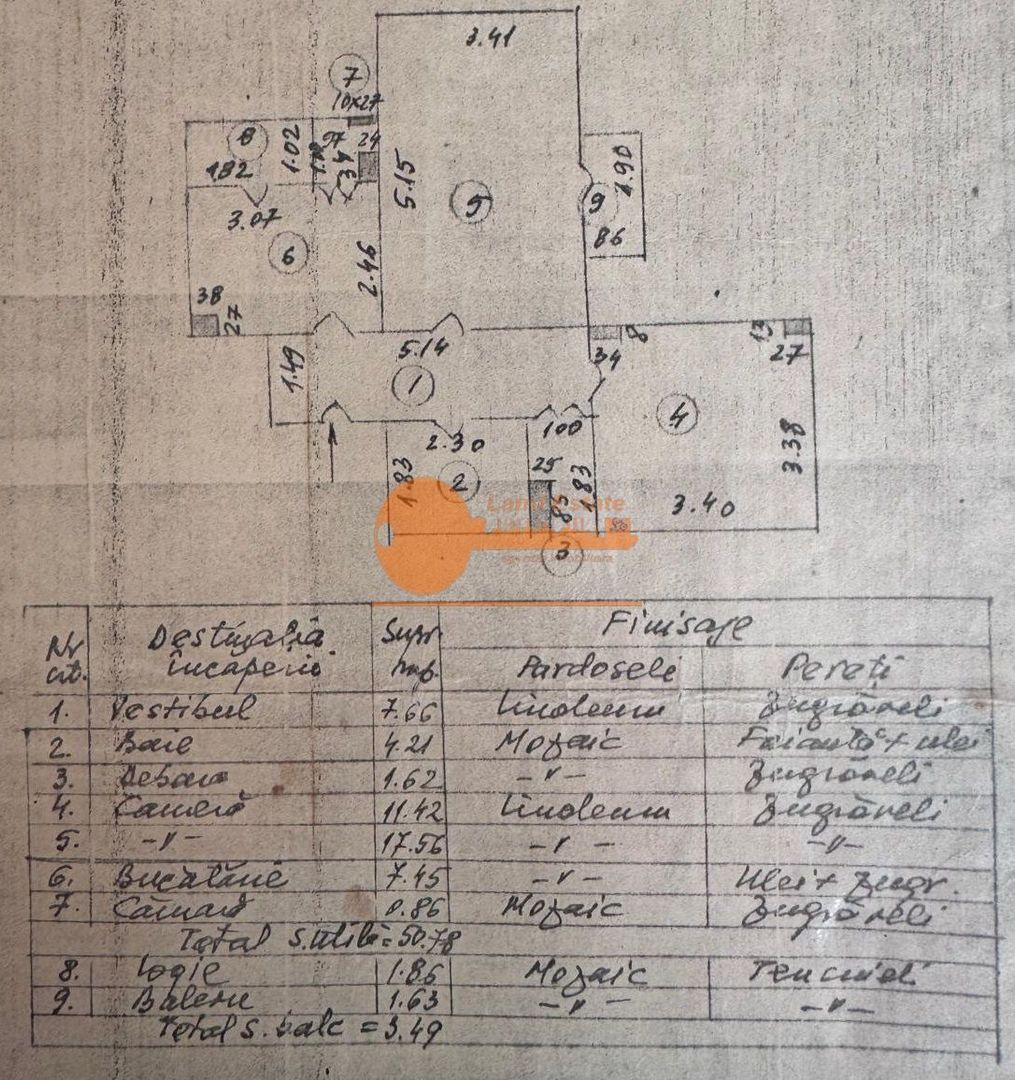 3.41
7
10x27
8
1.82
1.02
97
24
34
5.15
5
1.90
9
86
3.07
6
2.46
38
27
5.14
1.49
1
34
8
13
27
4
3.38
3.40
2.30
100
1.83
2
25
85
1.83
3
Nr crt.
Destinația încăperii
Supr.
Finisaje
Pardoseli
Pereți
1. Vestibul 7.66 Linoleum Zugrăveli
2. Baie 4.21 Mozaic Faianță + ulei
3. Debara 1.62 -"- Zugrăveli
4. Cameră 11.42 Linoleum Zugrăveli
5. -"- 17.56 -"- -"-
6. Bucătărie 7.45 -"- Ulei + zugr.
7. Cămară 0.86 Mozaic Zugrăveli
Total S.utilă = 50.78
8. Logie 1.86 Mozaic
9. Balcon 1.63 -"- -"-
Total S. balc = 3.49